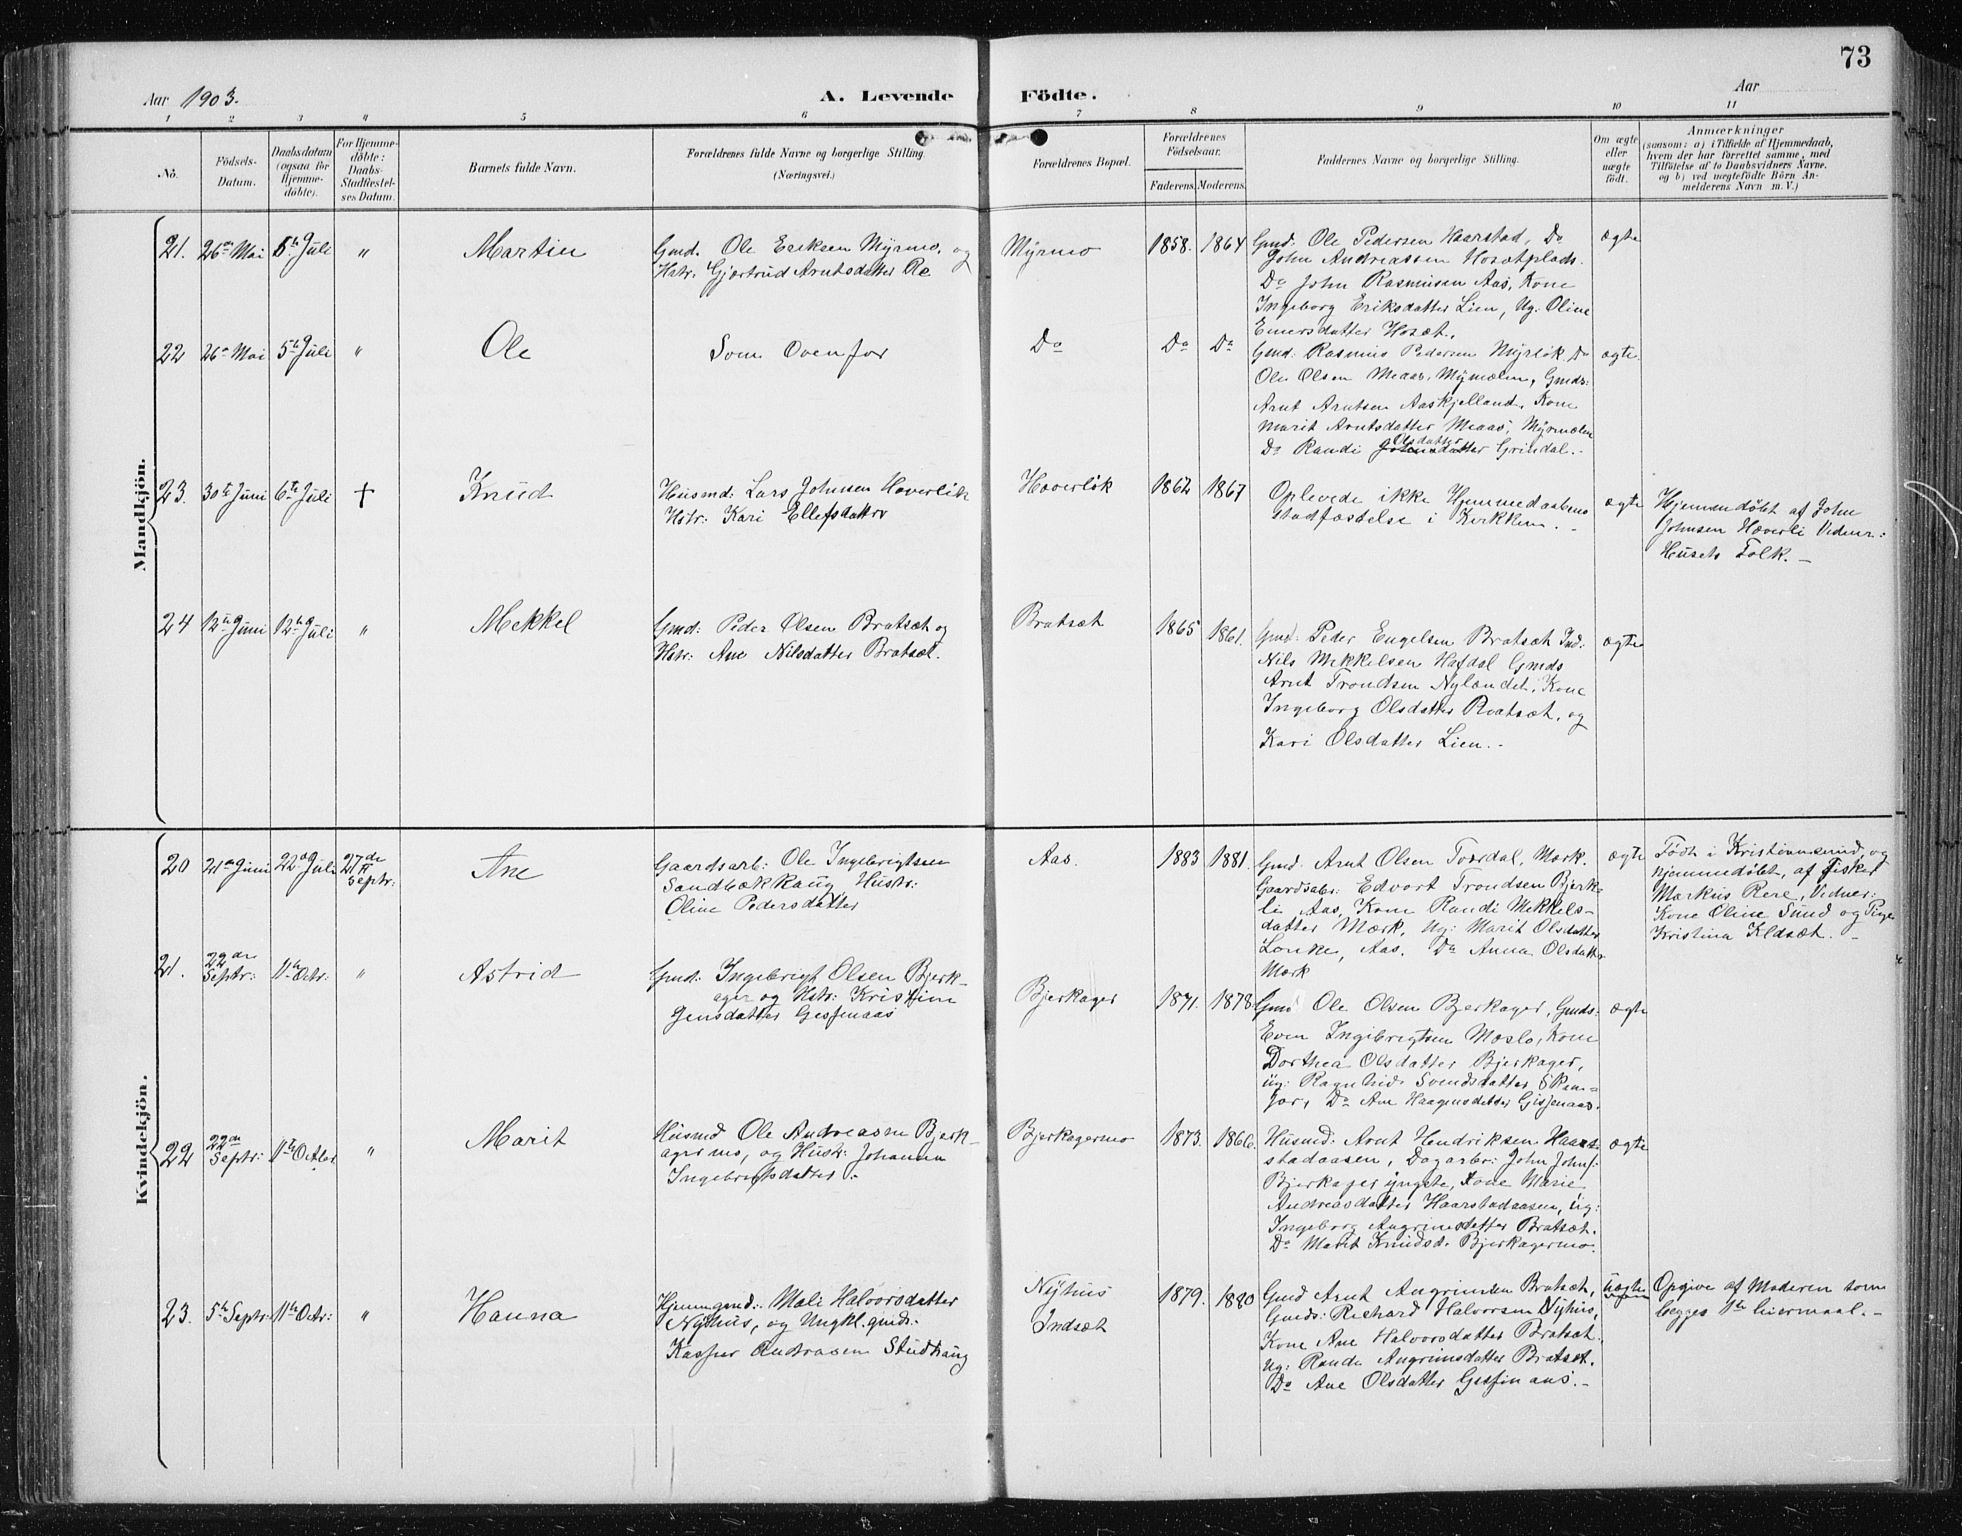 73
Aar 1903.
A. Levende Födte.
Aar
1 2 3 4 5 6 7 8 9 10 11
No.
Födsels-Datum.
Daabsdatum (ogsaa for Hjemme-döbte).
For Hjemme-döbte: Daabs-Stadfæstel-ses Datum.
Barnets fulde Navn.
Forældrenes fulde Navne og borgerlige Stilling. (Næringsvei.)
Forældrenes Bopæl.
Forældrenes Födselsaar.
Faderens. Moderens.
Faddernes Navne og borgerlige Stilling.
Om ægte eller uægte født.
Anmærkninger
(saasom: a) i Tilfælde af Hjemmedaab,
hvem der har forrettet samme, med
Tilföielse af to Daabsvidners Navne.
og b) ved uægtefödte Börn An-
melderens Navn m. V.)
Mandkjön.
21.
26de Mai
5te Juli
"
Martin
Gmd. Ole Eriksen Myrmo, og
Hstr. Gjertrud Arntsdatter Re
Myrmo
1858.
1864
Gmd: Ole Pedersen Haarstad, Do
John Andreassen Hosætplads.
Do John Rasmusen Aas, Kone
Ingeborg Eriksdatter Lien, Ug. Oline
Emersdatter Hosæt.
ægte
22
26de Mai
5te Juli
"
Ole
Som Ovenfor
Do
Do
Do
Gmd: Rasmus Pedersen Myrløk, Do
Ole Olsen Meaas, Myrmælen, Gmds:
Arnt Arntsen Aaskjelland, Kone
Marit Arntsdatter Meaas, Myrmælen
Do Randi Olsdatter Grindal.-
ægte.
23.
30te Juni
6te Juli
†
Knud
Husmd: Lars Johnsen Hæverløk
Hstr: Kari Ellefsdatter
Hæverløk
1862
1867
Oplevede ikke Hjemmedaabens
stadfæstelse i Kirkken.-
ægte
Hjemmedøbt af John
Johnsen Hæverli Vidner:
Husets Folk.-
24
12te Juni
12te Juli
"
Mekkel
Gmd: Peder Olsen Bratsæt og
Hstr: Ane Nilsdatter Bratsæt.
Bratsæt
1865
1861.
Gmd: Peder Engelsen Bratsæt Ind:
Nils Mekkelsen Hafdal Gmds
Arnt Trondsen Nylandet, Kone
Ingeborg Olsdatter Bratsæt, og
Kari Olsdatter Lien.-
ægte
Kvindekjön.
20
21de Juni
22de Juli
27de Septr:
Ane
Gaardsarb: Ole Ingebrigtsen
Sandbækkaug, Hustr:
Oline Pedersdatter
Aas.
1883
1881.
Gmd: Arnt Olsen Tvordal, Mærk.
Gaardsabr: Edvort Trondsen Bjerk-
li Aas, Kone Randi Mekkels-
datter Mærk, Ug: Marit Olsdatter
Lonke, Aas. Do Anna Olsdatter
Mærk
ægte
Født i Kristiansund, og
hjemmedøbt, af Fisker
Markus Rere, Vidner:
Kone Oline Sund og Pige
Kristina Kldsæt.-
21.
22de Septr:
11te Octr:
"
Astrid
Gmd: Ingebrigt Olsen Bjerk-
ager og Hstr: Kristine
Jensdatter Gisfinaas
Bjerkager
1871.
1878
Gmd Ole Olsen Bjerkager, Gmds:
Even Ingebrigtsen Mæslo, Kone
Dorthea Olsdatter Bjerkager,
Ug: Ragnhild Svendsdatter Skam-
for, Do Ane Haagensdatter Gisfinaas.
ægte
22
22de Septr:
11te Octbr
"
Marit
Husmd Ole Andreasen Bjerk-
agermo, og Hustr: Johanna
Ingebrigtsdatter.
Bjerkagermo
1873.
1866.
Husmd: Arnt Hendriksen Haar-
stadaasen, Dagarbr: John Johns:
Bjerkager yngste, Kone Marie
Andreasdatter Haarstadaasen, Ug:
Ingeborg Angrimsdatter Bratsæt.
Do Marit Knudsd. Bjerkagermo.
ægte
23.
5te Septr:
11te Octr:
"
Hanna
Hjemmgmd: Mali Halvorsdatter
Nyhus, og Ungkl. gmds.
Kasper Andreasen Studthaug
Nyhus
Indsæt
1879.
1880
Gmd Arnt Angrimsen Bratsæt,
Gmds: Rickard Halvorsen Nyhus,
Kone Ane Halvorsdatter Bratsæt.
Ug: Randi Angrimsdatter Bratsæt.
Do Ane Olsdatter Gisfinaas.-
uægte
Opgive af Moderen som
begges 1te leiermaal.-